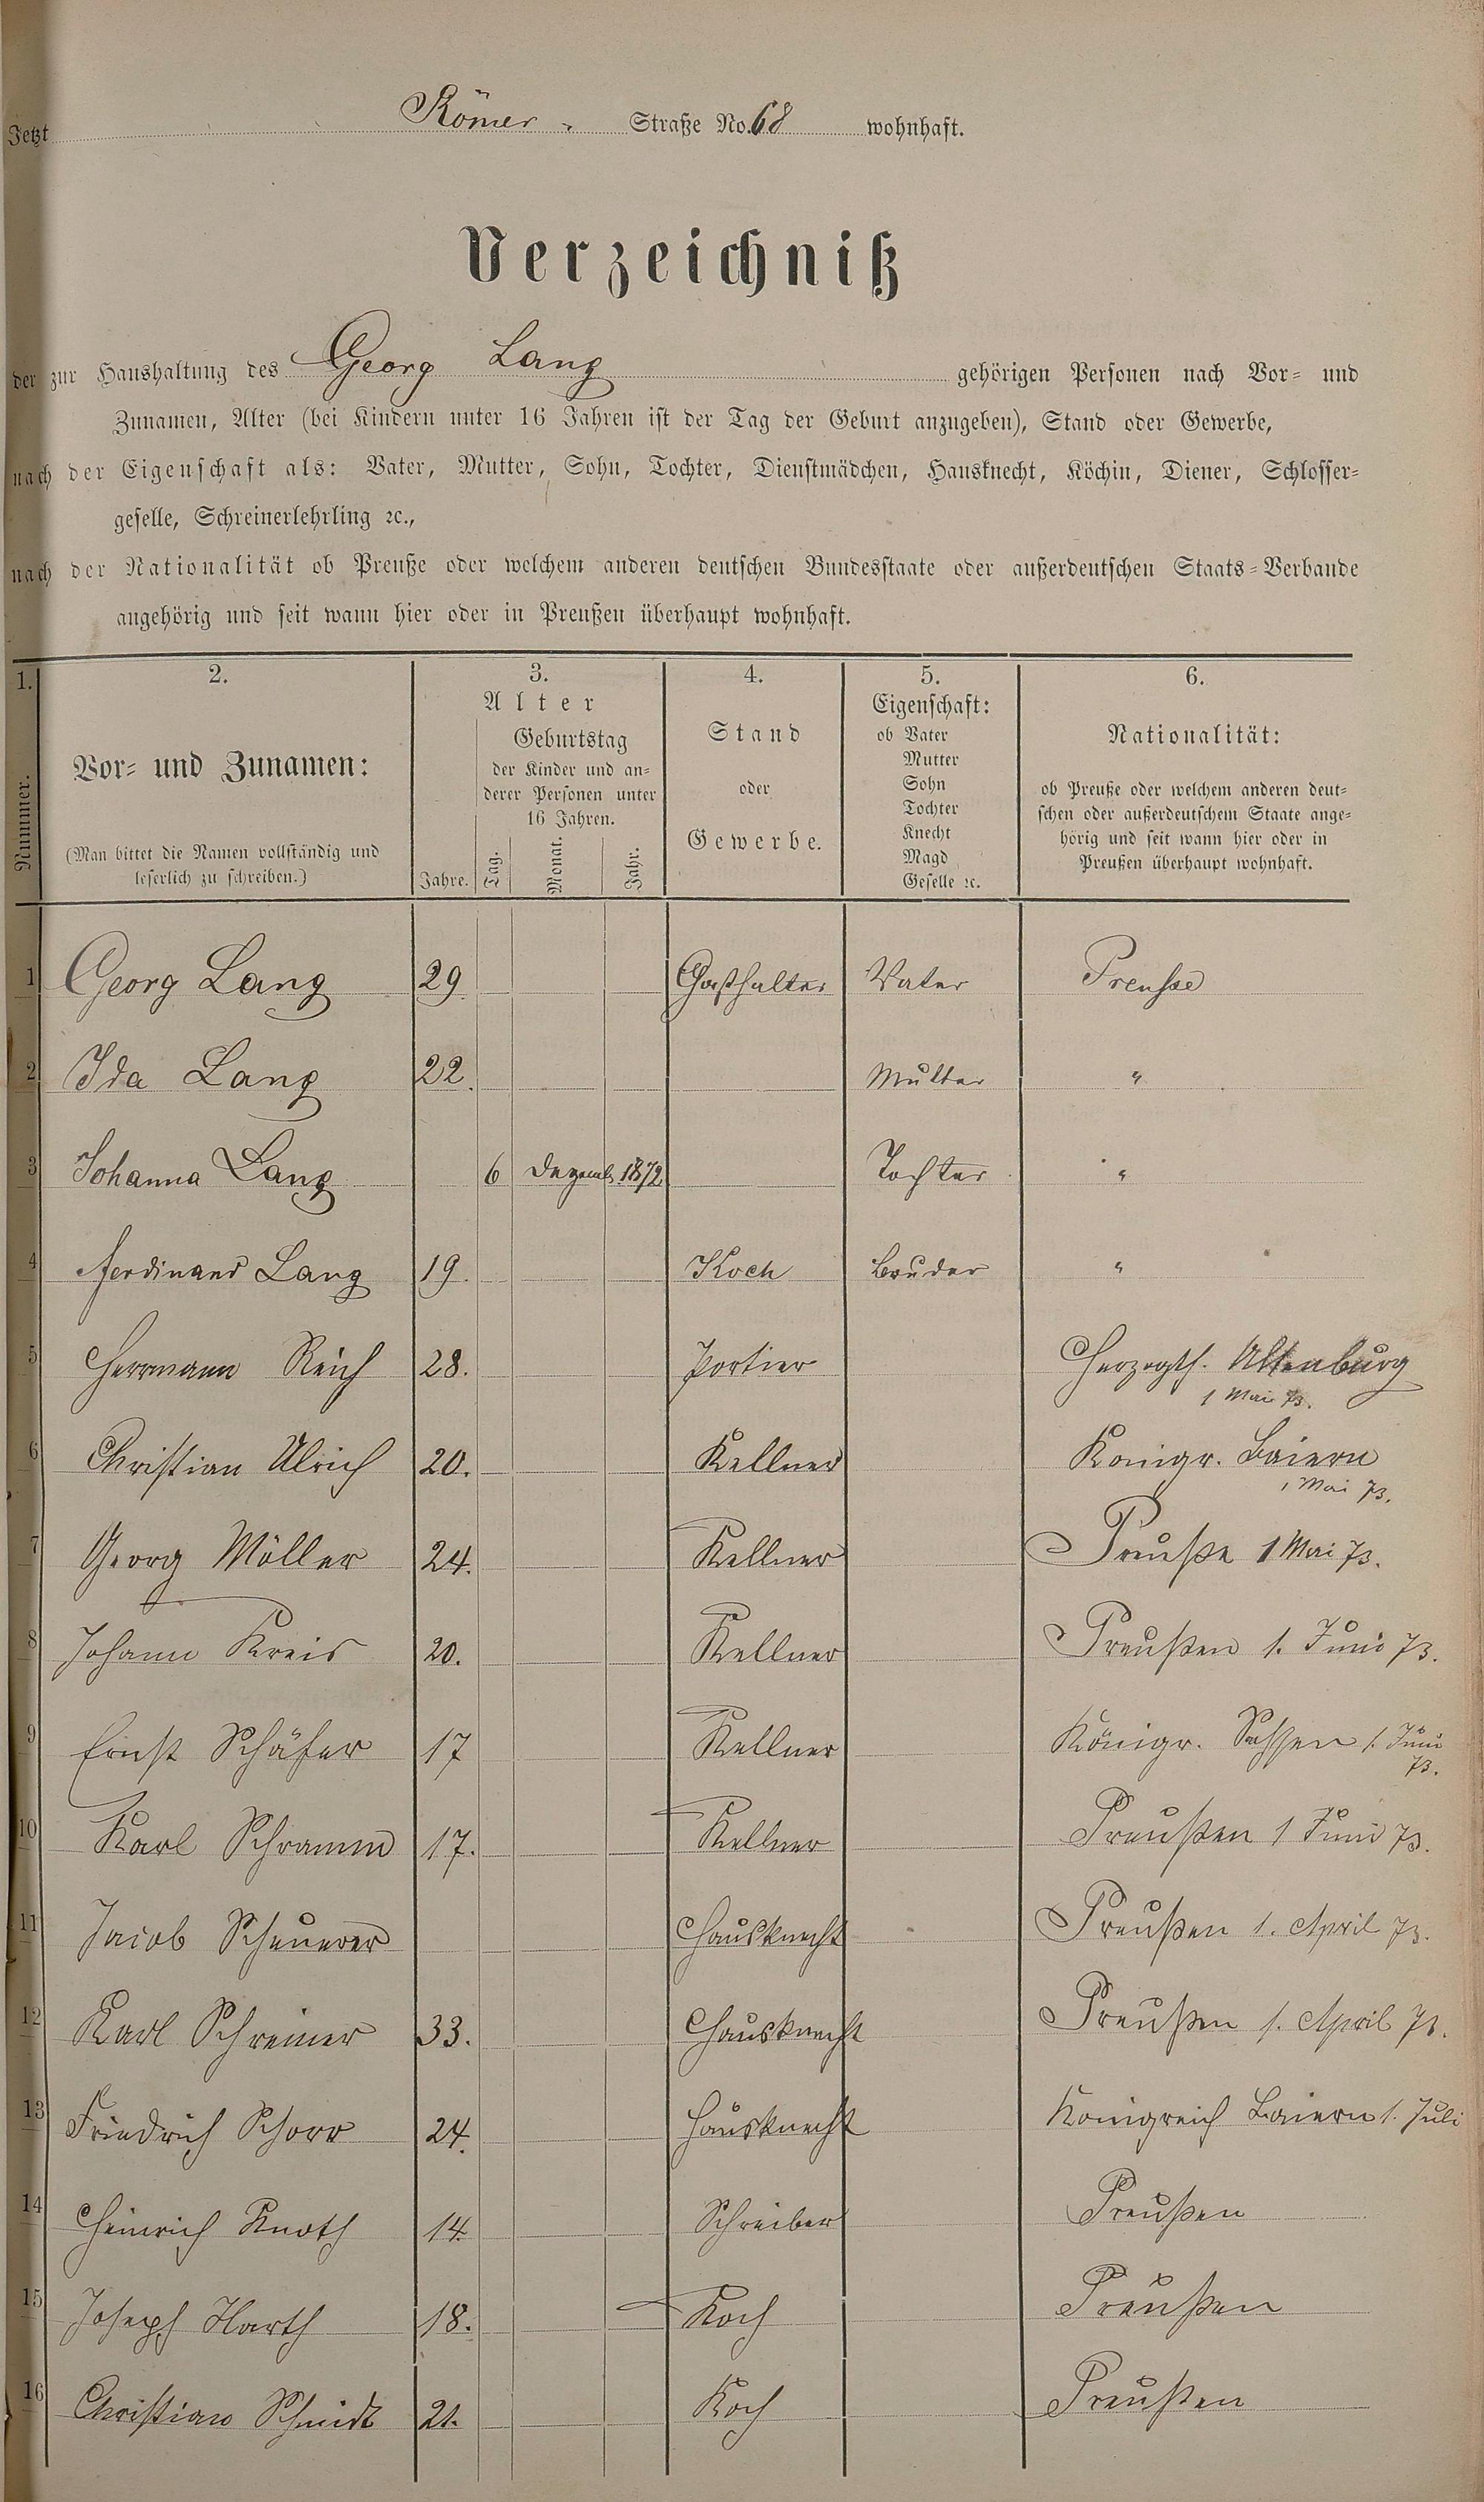 Jetzt Römer- Straße No. 68 wohnhaft.
Verzeichniß
der zur Haushaltung des Georg Lang gehörigen Personen nach Vor- und
Zunamen, Alter (bei Kindern unter 16 Jahren ist der Tag der Geburt anzugeben), Stand oder Gewerbe,
nach der Eigenschaft als: Vater, Mutter, Sohn, Tochter, Dienstmädchen, Hausknecht, Köchin, Diener, Schlosser-
geselle, Schreinerlehrling ꝛc.,
nach der Nationalität ob Preuße oder welchem anderen deutschen Bundesstaate oder außerdeutschen Staats-Verbande
angehörig und seit wann hier oder in Preußen überhaupt wohnhaft.
1.
Nummer.
2.
Vor- und Zunamen:
(Man bittet die Namen vollständig und
leserlich zu schreiben.)
3.
Alter
Jahre.
Geburtstag
der Kinder und an-
derer Personen unter
16 Jahren.
Tag. Monat. Jahr.
4.
Stand
oder
Gewerbe.
5.
Eigenschaft:
ob Vater
Mutter
Sohn
Tochter
Knecht
Magd
Geselle ꝛc.
6.
Nationalität:
ob Preuße oder welchem anderen deut-
schen oder außerdeutschem Staate ange-
hörig und seit wann hier oder in
Preußen überhaupt wohnhaft.
1 Georg Lang 29 Gasthalter Vater Preusse
2 Ida Lang 22. Mutter "
3 Johanna Lang 6 Dezemb. 1872 Tochter "
4 Ferdinand Lang 19. Koch Bruder "
5 Herrmann Reich 28. Portier Herzogth. Altenburg
1 Mai 73.
6 Christian Ulrich 20. Kellner Konigr. Baiern
1 Mai 73.
7 Georg Möller 24. Kellner Preuße 1 Mai 73.
8 Johann Kreis 20. Kellner Preußen 1. Juni 73.
9 Ernst Schäfer 17 Kellner Königr. Sachsen 1. Juni
73.
10 Karl Schramm 17. Kellner Preußen 1 Juni 73.
11 Jacob Scheuerer Hausknecht Preußen 1. April 73.
12 Karl Schreiner 33. Hausknecht Preußen 1. April 73.
13 Friedrich Schorr 24. Hausknecht Konigreich Baiern 1. Juli
14 Heinrich Knoth 14. Schreiber Preußen
15 Joseph Harth 18. Koch Preußen
16 Christian Schmidt 21. Koch Preußen